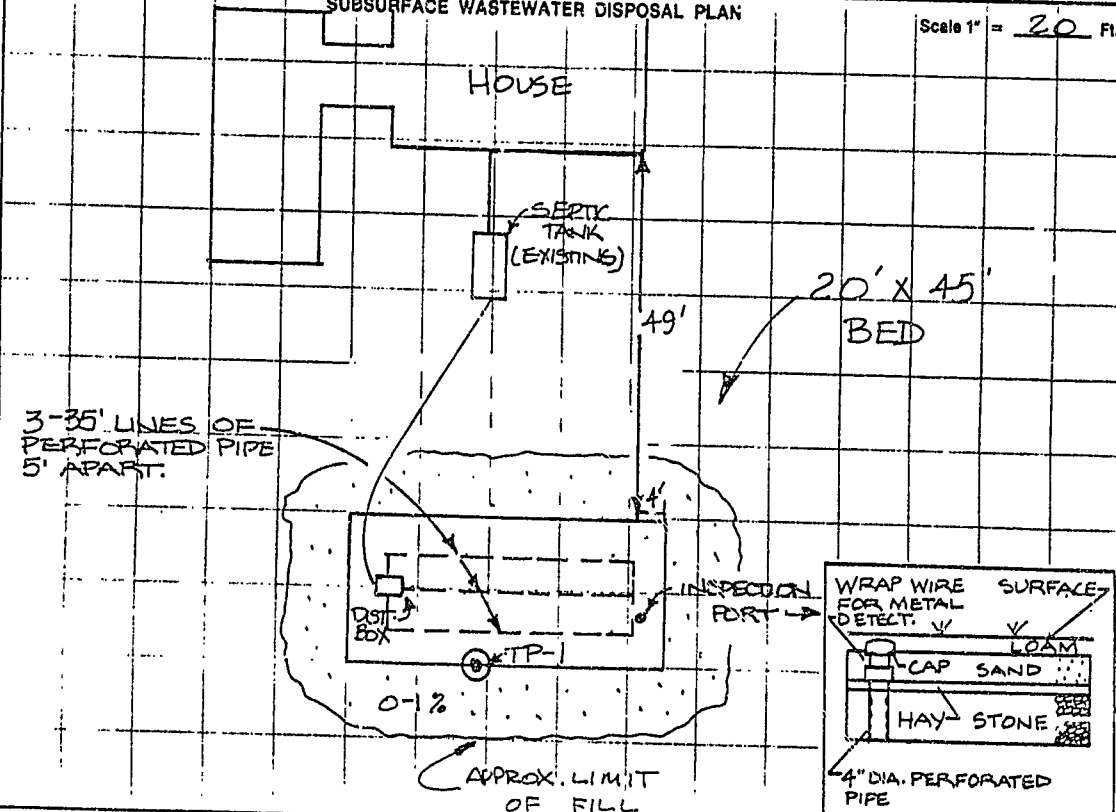 SUBSURFACE WASTEWATER DISPOSAL PLAN
Scale 1" = 20 Ft.
HOUSE
SEPTIC
TANK
(EXISTING)
20' X 45'
BED
49'
3-35' LINES OF
PERFORATED PIPE
5' APART.
4'
DIST.
BOX
INSPECTION
PORT
TP-1
0-1%
APPROX. LIMIT
OF FILL
WRAP WIRE
FOR METAL
DETECT.
SURFACE
LOAM
CAP SAND
HAY STONE
4" DIA. PERFORATED
PIPE